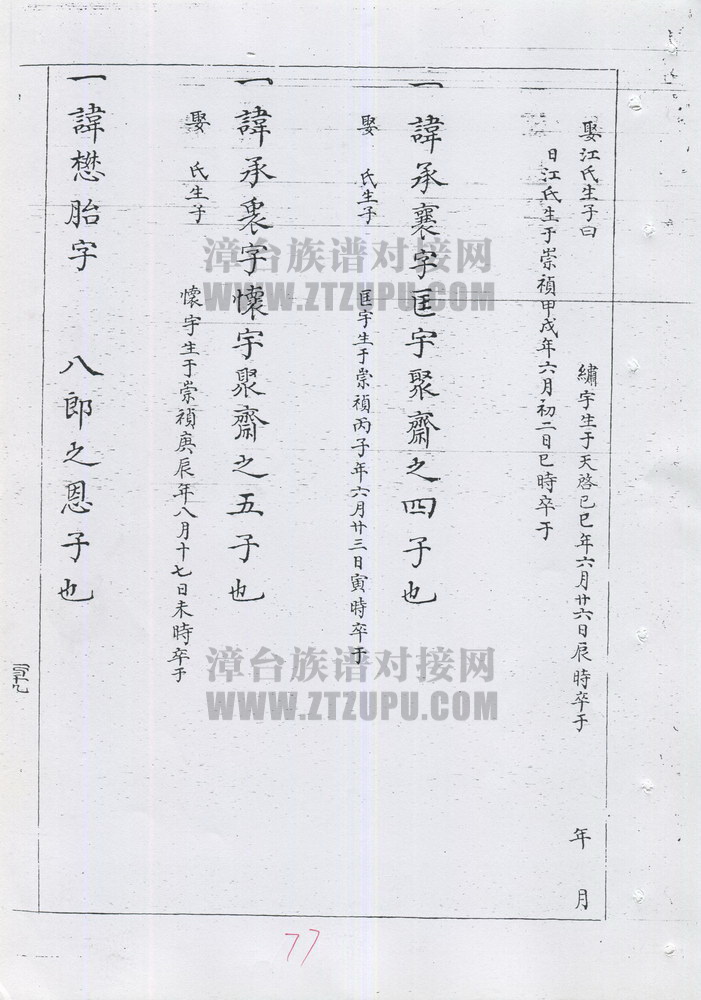 娶江氏生子曰 繡宇生于天啓己巳年六月廿六日辰時卒于 年 月
日江氏生于崇禎甲戌年六月初二日巳時卒于
一諱承襄字匡宇聚齋之四子也
娶 氏生子 匡宇生于崇禎丙子年六月廿三日寅時卒于
一諱承裏字懷宇聚齋之五子也
娶 氏生子 懷宇生于崇禎庚辰年八月十七日未時卒于
一諱懋胎字 八郎之恩子也
77
漳台族谱对接网
WWW.ZTZUPU.COM
漳台族谱对接网
WWW.ZTZUPU.COM